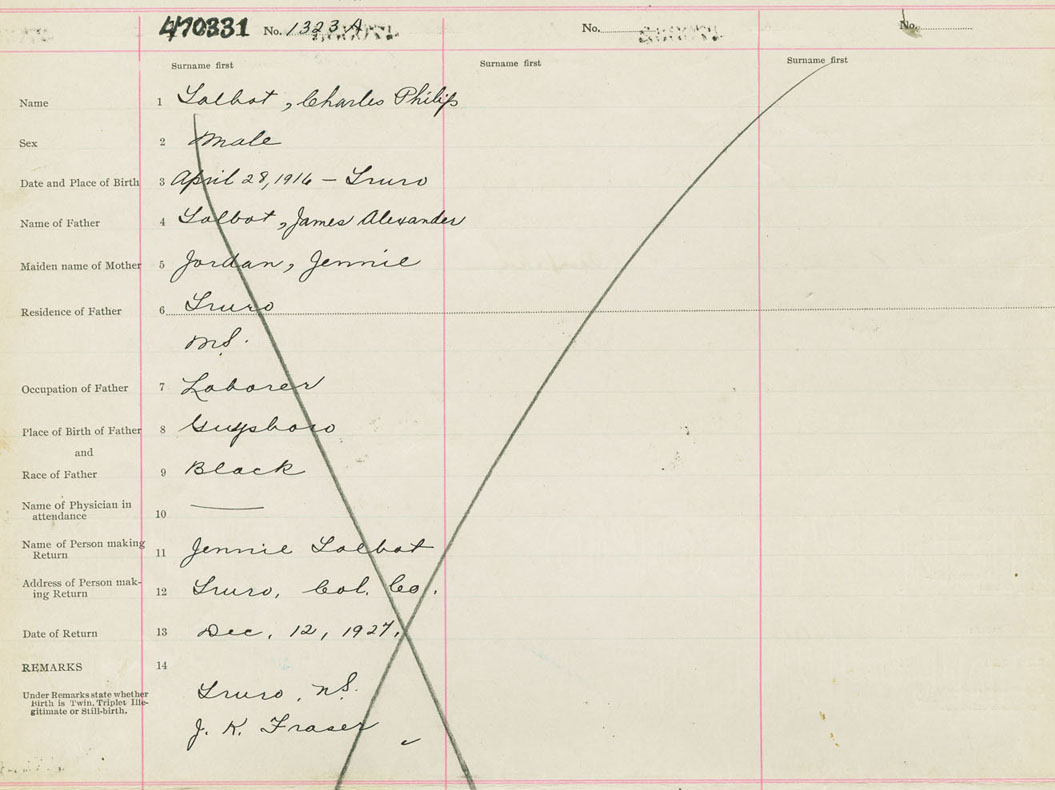 470331 No. 1323 A No. No.
Surname first Surname first Surname first
Name 1 Talbot, Charles Philip
Sex 2 Male
Date and Place of Birth 3 April 28, 1916 — Truro
Name of Father 4 Talbot, James Alexander
Maiden name of Mother 5 Jordan, Jennie
Residence of Father 6 Truro
N.S.
Occupation of Father 7 Laborer
Place of Birth of Father 8 Guysboro
and
Race of Father 9 Black
Name of Physician in
attendance 10 —
Name of Person making
Return 11 Jennie Talbot
Address of Person mak-
ing Return 12 Truro, Col. Co.
Date of Return 13 Dec, 12, 1927.
REMARKS 14
Under Remarks state whether
Birth is Twin, Triplet Ille-
gitimate or Still-birth.
Truro, N.S.
J. K. Fraser